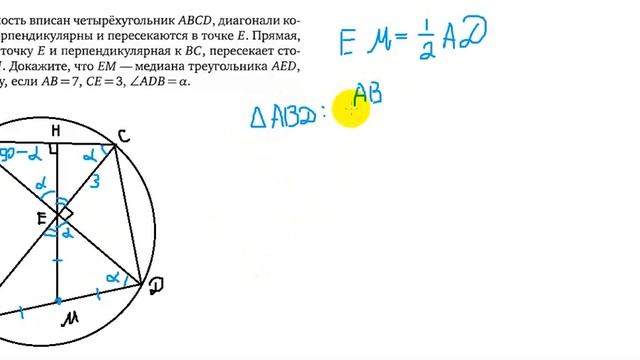 ность вписан четырёхугольник ABCD, диагонали ко-
рпендикулярны и пересекаются в точке E. Прямая,
точку E и перпендикулярная к BC, пересекает сто-
Докажите, что EM — медиана треугольника AED,
у, если AB = 7, CE = 3, ∠ADB = α.
EM = 1/2 AD
△ABD: AB
H
C
90 - α
α
α
3
E
α
α
D
M